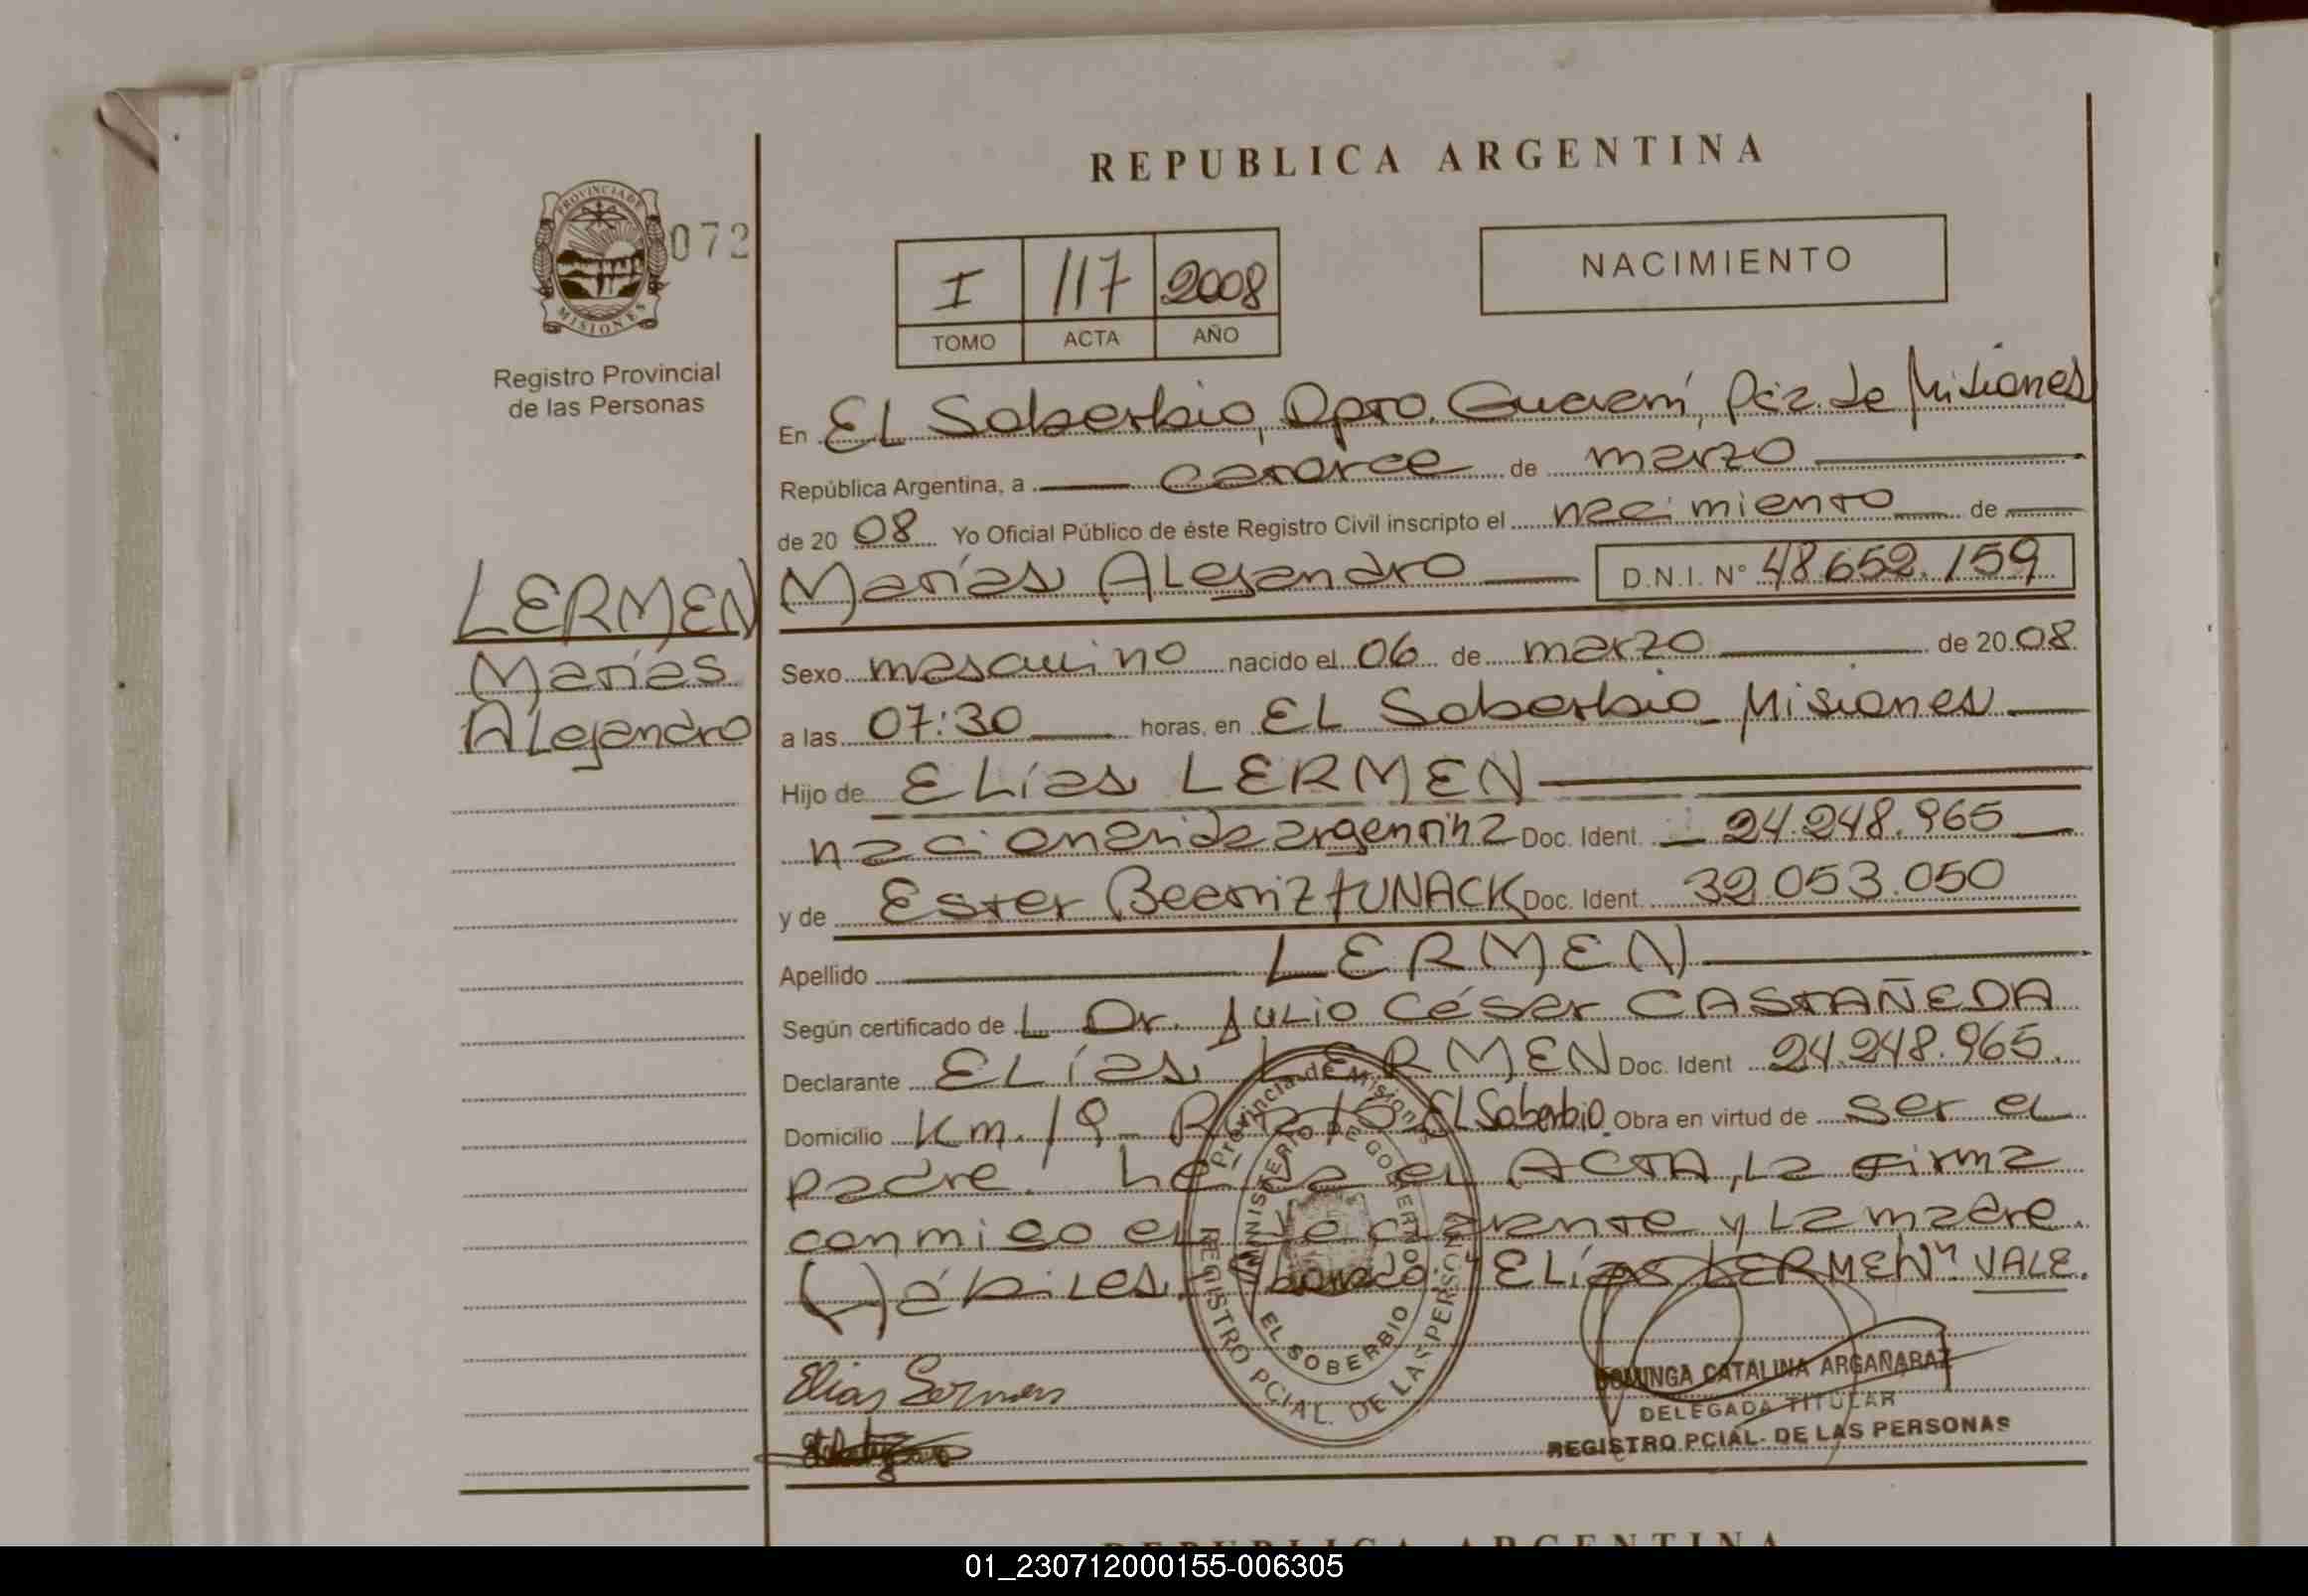 REPUBLICA ARGENTINA
PROVINCIA DE
MISIONES
072
Registro Provincial
de las Personas
I 117 2008
TOMO ACTA AÑO
NACIMIENTO
LERMEN
Matías
Alejandro
En El Soberbio, Dpto. Guaraní, Pcia. de Misiones
República Argentina, a catorce de marzo
de 2008 Yo Oficial Público de éste Registro Civil inscripto el nacimiento de
Matías Alejandro D.N.I. Nº 48.652.159
Sexo masculino nacido el 06 de marzo de 2008
a las 07:30 horas, en El Soberbio - Misiones
Hijo de Elías LERMEN
nacionalidad argentina Doc. Ident. 24.248.965
y de Ester Beatriz Doc. Ident. 32.053.050
Apellido LERMEN
Según certificado de L Dr. Julio César CASTAÑEDA
Declarante Elías LERMEN Doc. Ident 24.248.965.
Domicilio Km. 19 - El Soberbio. Obra en virtud de ser el
padre. Leída el ACTA, la firma
conmigo el declarante y la madre.
"Elías LERMEN" VALE.
Provincia de Misiones
MINISTERIO DE GOBIERNO
REGISTRO PCIAL. DE LAS PERSONAS
EL SOBERBIO
Elias Lermen
DOMINGA CATALINA ARGAÑARAZ
DELEGADA TITULAR
REGISTRO PCIAL- DE LAS PERSONAS
REPUBLICA ARGENTINA
01_230712000155-006305